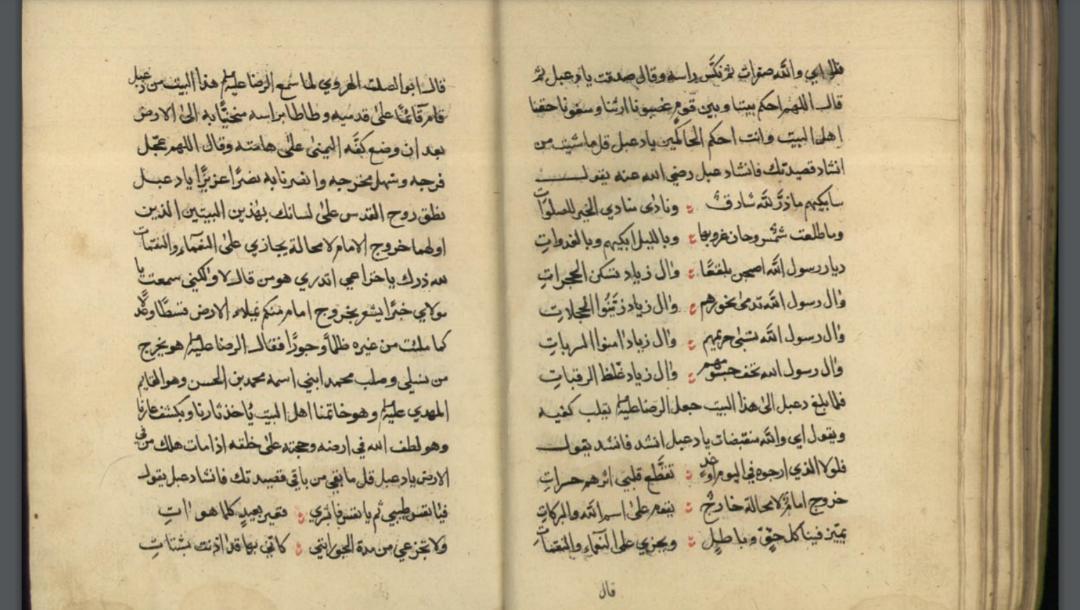 فقال اي والله صفرات ثم نكس راسه وقال صدقت يا دعبل ثم
قال اللهم احكم بيننا وبين قوم غصبونا ارثنا وسعونا حقنا
اهل البيت وانت احكم الحاكمين يا دعبل قل ما شئت من
انشاد قصيدتك فانشاد دعبل رضي الله عنه يقول
سابكيهم ما ذر لله شارق ونادى منادي الخير للصلوات
وما طلعت شمس وحان غروبها وبالليل ابكيهم وبالغدوات
ديار رسول الله اصبحن بلقعا وال زياد تسكن الحجرات
وال رسول الله تدمى نحورهم وال زياد زينوا الحجلات
وال رسول الله تسبى حريمهم وال زياد امنوا السربات
وال رسول الله نحف جسومهم وال زياد غلظ الرقبات
فلما بلغ دعبل الى هذا البيت جعل الرضا عليلم يقلب كفيه
ويقول اي والله منقبضات يا دعبل انشد فانشد يقول
فلولا الذي ارجوه في اليوم او غد تقطع قلبي اثرهم حسرات
خروج امام لا محالة خارج يقوم على اسم الله والبركات
يميز فينا كل حق وباطل ويجزي على النعماء والنقمات
قال
قال ابو الصلت الهروي لما سمع الرضا عليلم هذا البيت من دعبل
قام قائما على قدميه وطاطا براسه منحنيا به الى الارض
بعد ان وضع كفه اليمنى على هامته وقال اللهم عجل
فرجه وسهل مخرجه وانصرنا به نصرا عزيزا يا دعبل
نطق روح القدس على لسانك بهذين البيتين الذين
اولهما خروج الامام لا محالة يجازي على النعماء والنقمات
لله درك يا خزاعي اتدري هو من قال لا ولكني سمعت يا
مولاي خبرا يشو بخروج امام منكم يملاء الارض قسطا وعدلا
كما ملئت من غيره ظلما وجورا فقال الرضا عليلم هو يخرج
من نسلي وصلب محمد ابني اسمه محمد بن الحسن وهو القايم
المهدي عليلم وهو خاتمنا اهل البيت ياخذ ثارنا ويكشف عارنا
وهو لطف الله في ارضه وحجته على خلقه اذا مات هلك من في
الارض يا دعبل قل ما بقي من باقي قصيدتك فانشاد دعبل يقول
فيا نفس طيبي ثم يا نفس فابشري فغير بعيد كلما هو ات
ولا تجزعي من مدة الجور انني كاني بها قد اذنت بشتات